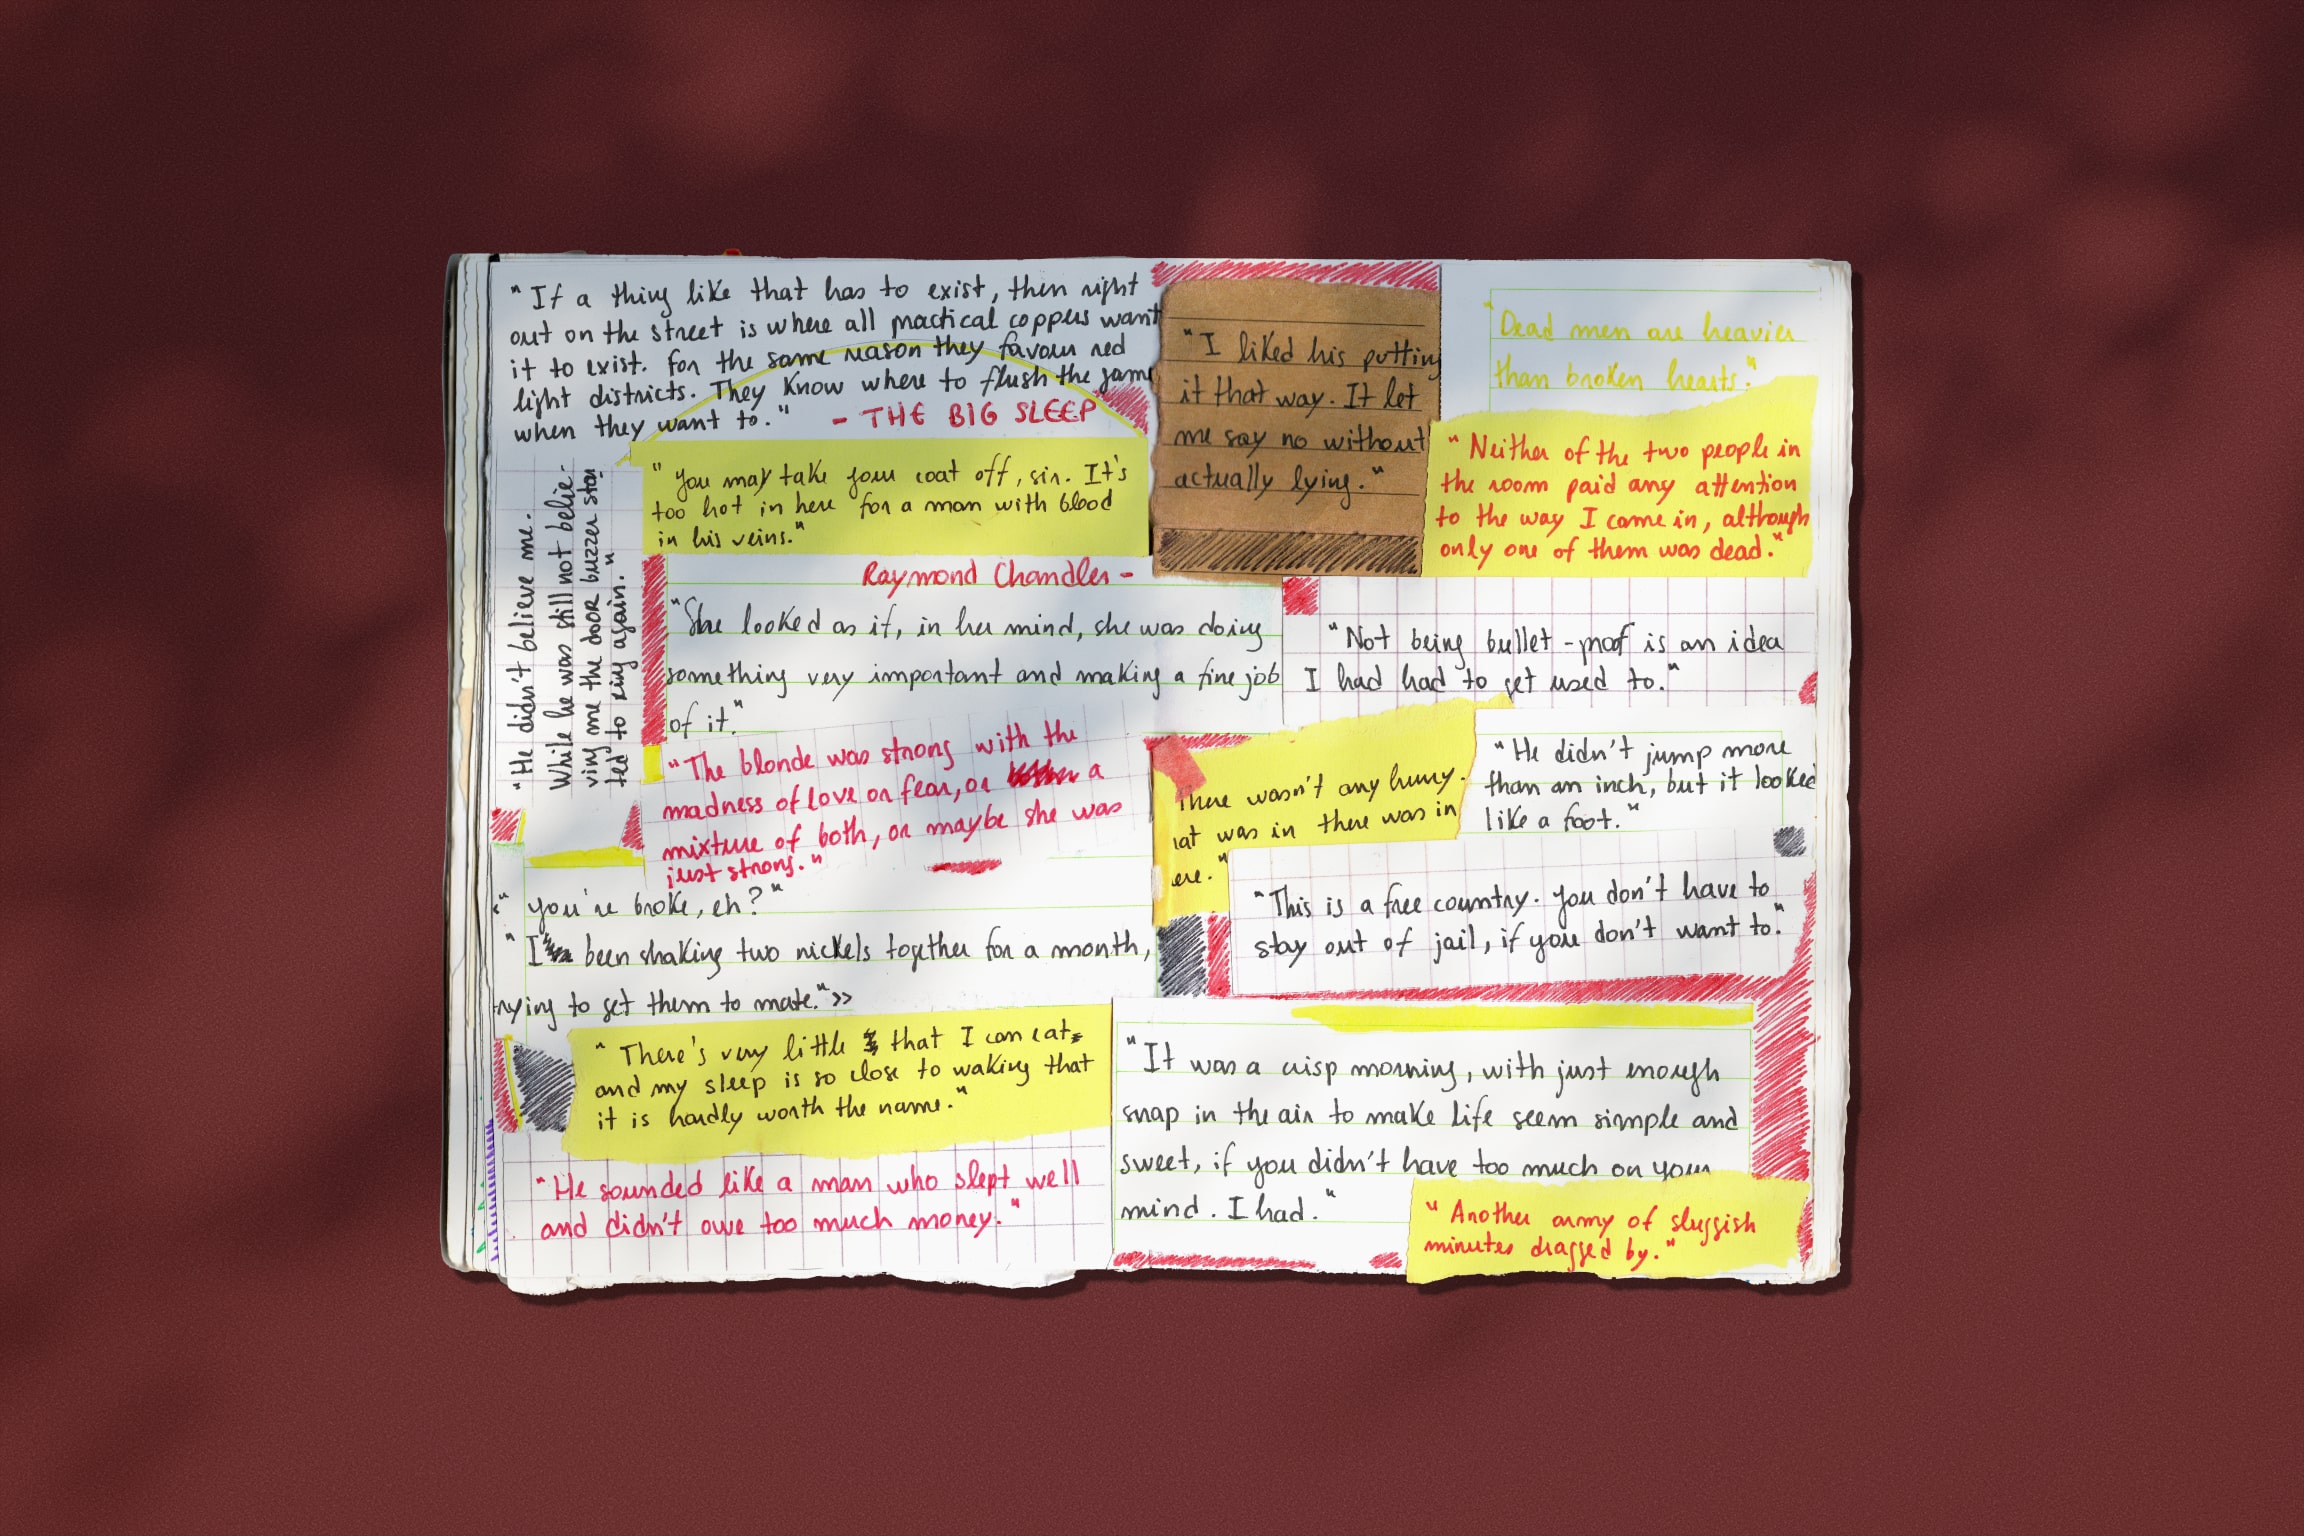 "If a thing like that has to exist, then right
out on the street is where all practical coppers want
it to exist. For the same reason they favour red
light districts. They know where to flush the game
when they want to."
- THE BIG SLEEP
"He didn't believe me.
While he was still not belie-
ving me the door buzzer star
ted to ring again."
"You may take your coat off, sir. It's
too hot in here for a man with blood
in his veins."
Raymond Chandler -
"She looked as if, in her mind, she was doing
something very important and making a fine job
of it."
"The blonde was strong with the
madness of love or fear, or a
mixture of both, or maybe she was
just strong."
" you're broke, eh?"
" I been shaking two nickels together for a month,
trying to get them to mate." >>
"There's very little that I can eat
and my sleep is so close to waking that
it is hardly worth the name."
"He sounded like a man who slept well
and didn't owe too much money."
"I liked his putting
it that way. It let
me say no without
actually lying."
"Dead men are heavier
than broken hearts."
"Neither of the two people in
the room paid any attention
to the way I came in, although
only one of them was dead."
"Not being bullet-proof is an idea
I had had to get used to."
There wasn't any hurry.
at was in there was in
ere."
"He didn't jump more
than an inch, but it looked
like a foot."
"This is a free country. You don't have to
stay out of jail, if you don't want to."
"It was a crisp morning, with just enough
snap in the air to make life seem simple and
sweet, if you didn't have too much on your
mind. I had."
"Another army of sluggish
minutes dragged by."